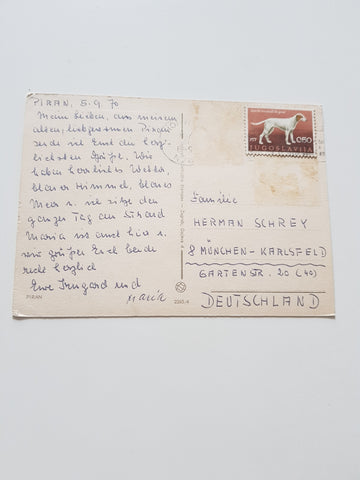 PIRAN, 5.9.70
Meine Lieben, aus meinem
alten, liebgewonnenen Piran
sende ich Euch die herz-
lichsten Grüße. Wir
haben herrliches Wetter,
blauer Himmel, blaues
Meer u. wir sitzen den
ganzen Tag am Strand
Maria ist auch hier u.
wir grüßen Euch beide
recht herzlich
Eure Irmgard und
Maria
PIRAN
2265/4
0.50
JUGOSLAVIJA
Familie
HERMAN SCHREY
8 MÜNCHEN-KARLSFELD
GARTENSTR. 20 (40)
DEUTSCHLAND